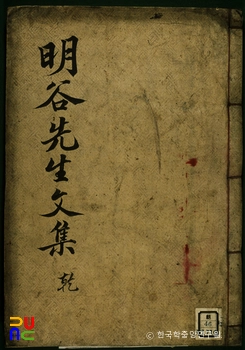 明谷先生文集
乾
© 한국학중앙연구원